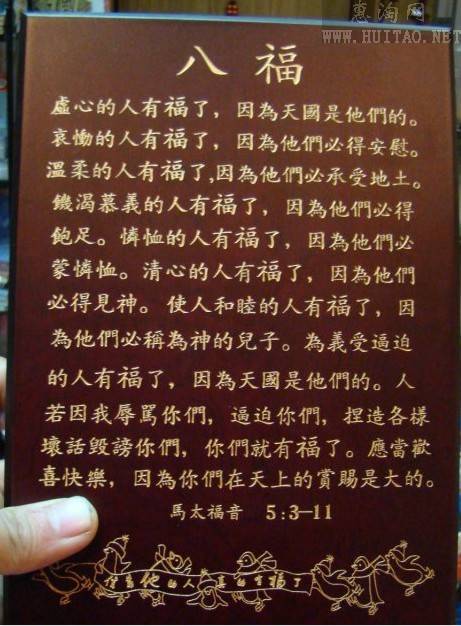 惠淘网
WWW.HUITAO.NET
八福
虛心的人有福了，因為天國是他們的。
哀慟的人有福了，因為他們必得安慰。
溫柔的人有福了,因為他們必承受地土。
饑渴慕義的人有福了，因為他們必得
飽足。憐恤的人有福了，因為他們必
蒙憐恤。清心的人有福了，因為他們
必得見神。使人和睦的人有福了，因
為他們必稱為神的兒子。為義受逼迫
的人有福了，因為天國是他們的。人
若因我辱罵你們，逼迫你們，捏造各樣
壞話毀謗你們，你們就有福了。應當歡
喜快樂，因為你們在天上的賞賜是大的。
馬太福音 5:3-11
他的人 的有福了